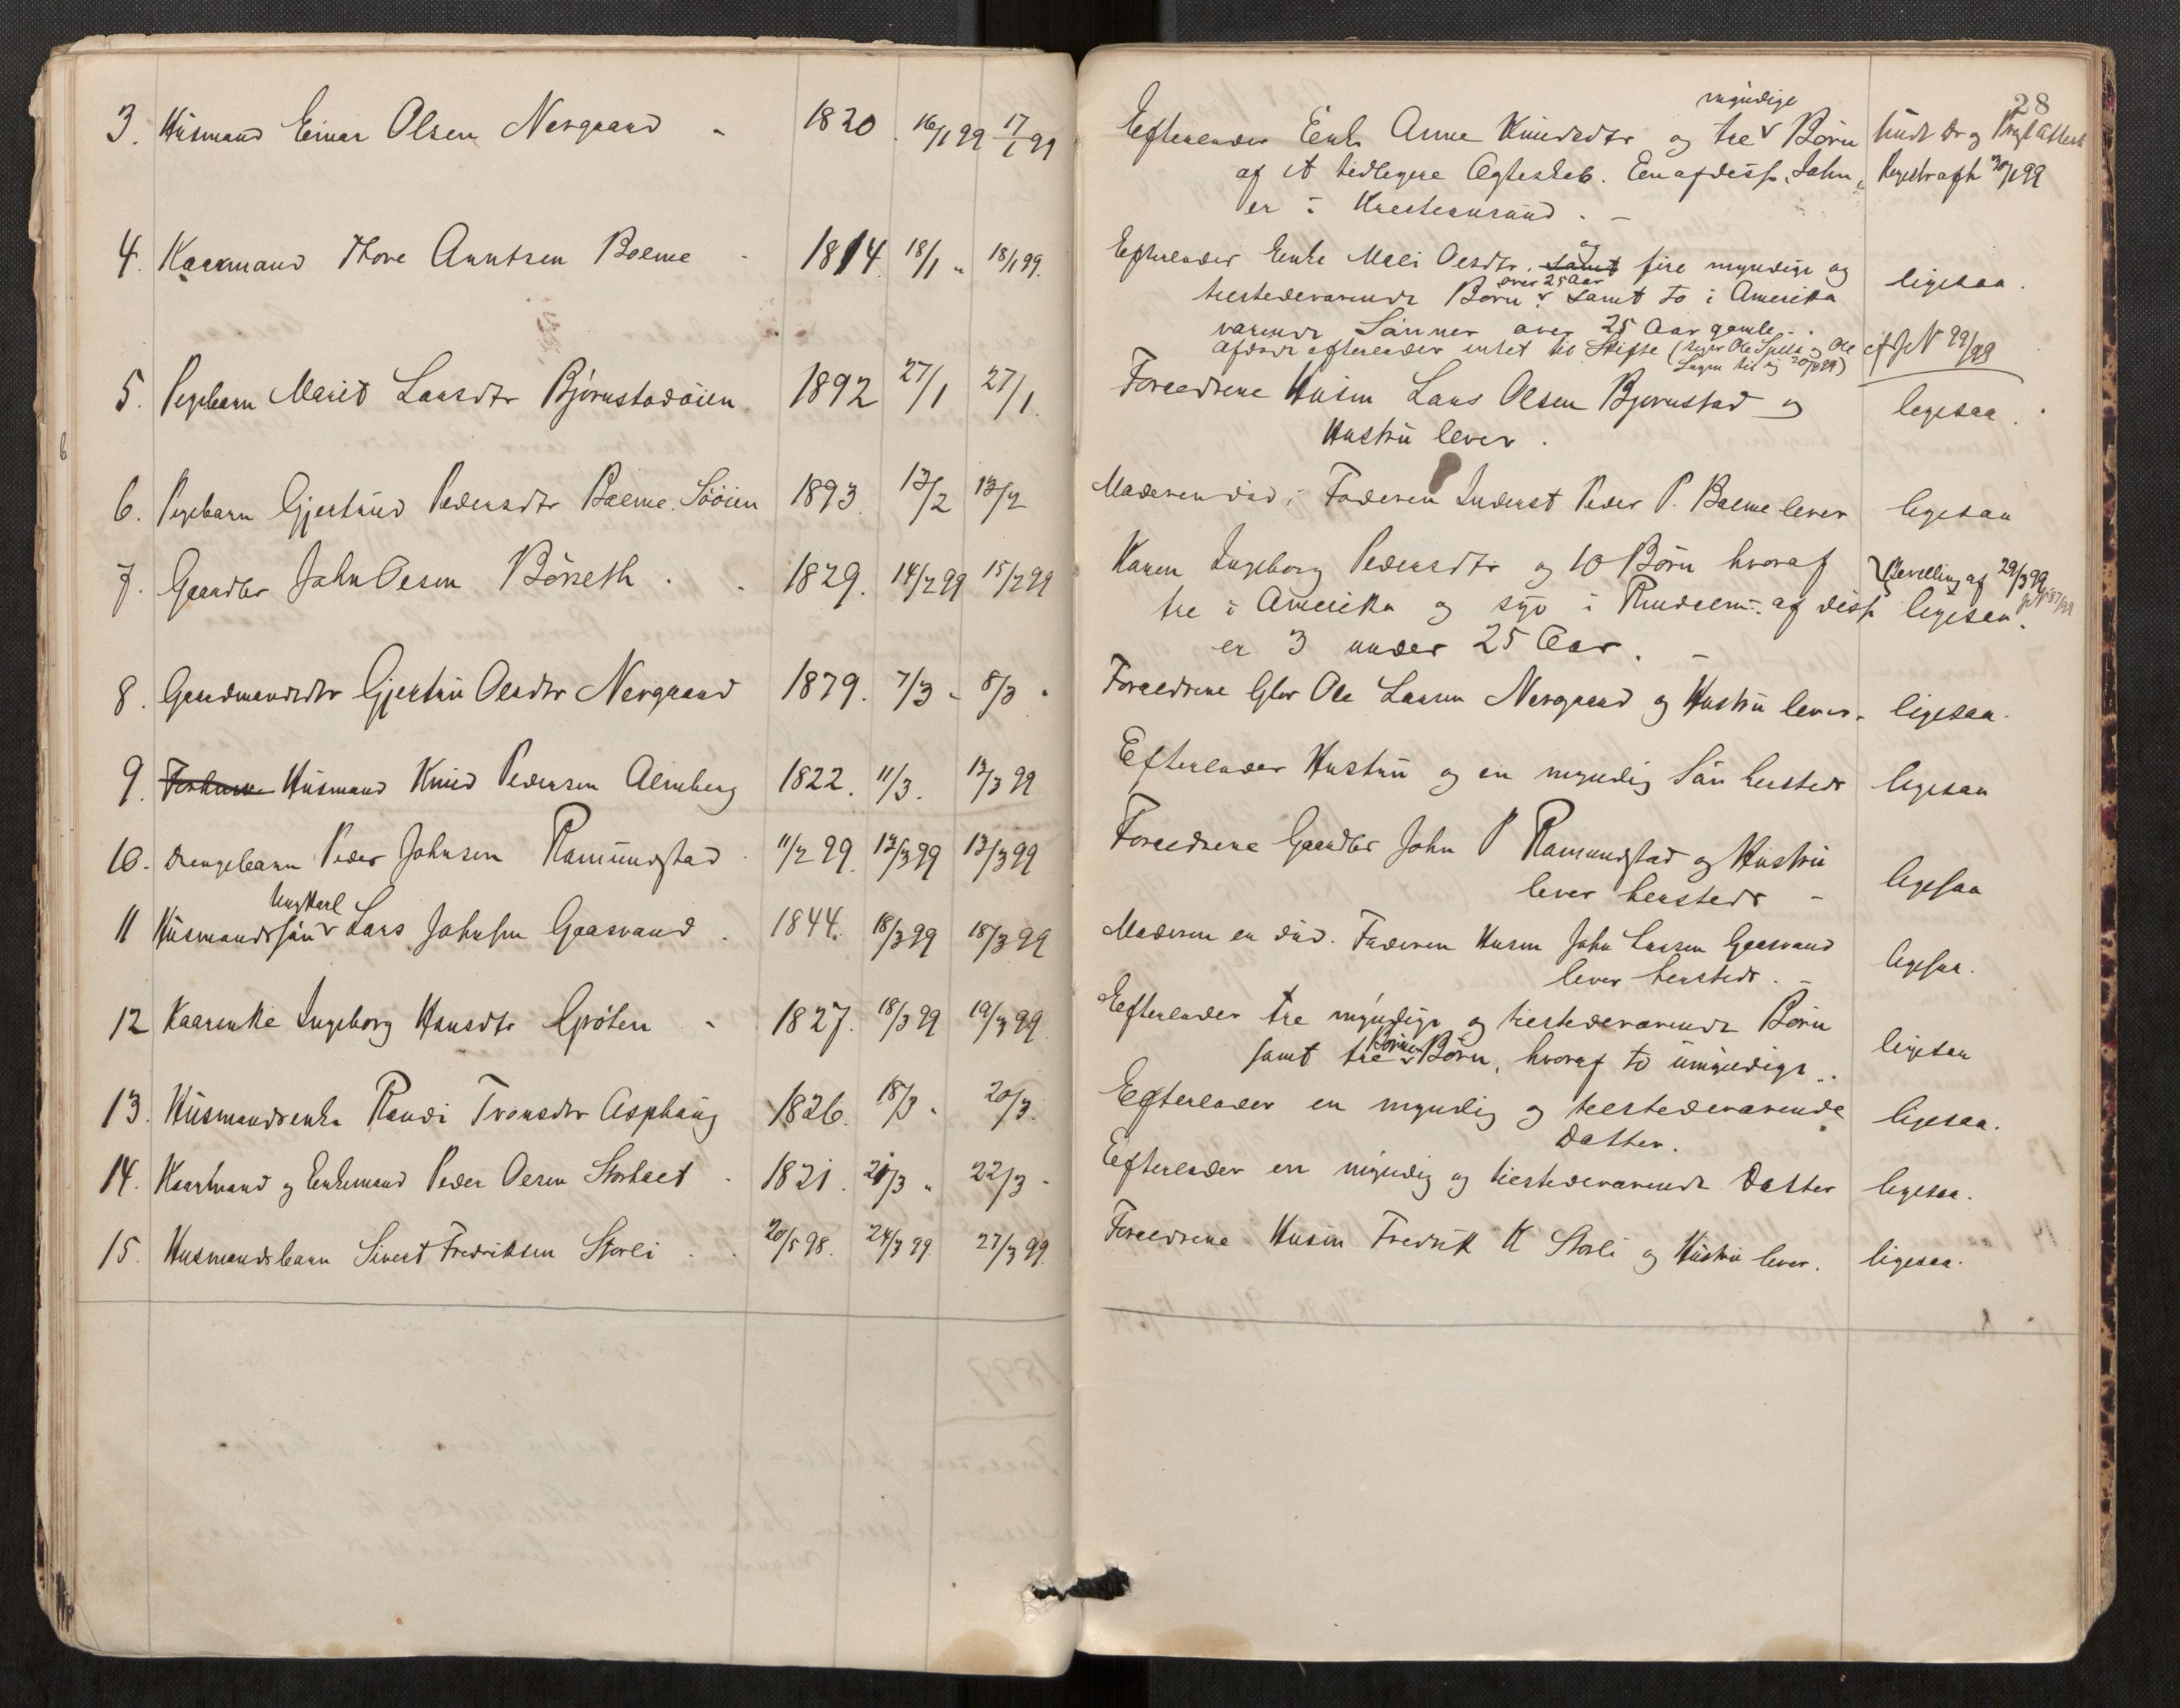 28
3. Husmand Einar Olsen Nergaard - 1820. 16/1 99 17/1 99
myndige
Efterlader Enke Anne Knudsdtr og tre v Børn
af et tidligere Ægteskab. En af disse, John,
er i Kristiansund. -
Regstr afh 30/1 99
4. Kaarmand Tore Arntsen Bolme - 1814. 18/1 „ 18/1 99.
Efterlader Enke Mali Olsdtr. samt og fire myndige og
over 25 Aar
tilstedeværende Børn v samt to i Amerika
værende Sønner over 25 Aar gamle..
Afdøde efterlader intet til Skifte (siger Ole Spels og Ole
20/4 99)
ligesaa.
cf JN 99/99
5. Pigebarn Marit Larsdtr Bjørnstadøien 1892 27/1 27/1.
Forældrene Husm Lars Olsen Bjørnstad og
Hustru lever.
ligesaa.
6. Pigebarn Gjertrud Pedersdtr Bolme. Söøien 1893. 12/2 13/2
Moderen død; Faderen Inderst Peder P. Bolme lever
ligesaa
7. Gaardbr John Olsen Börseth. - 1829. 14/2 99 15/2 99
Karen Ingeborg Pedersdtr og 10 Børn hvoraf
tre i Amerika og syv i Rindalen. af disse
er 3 under 25 Aar. -
Bevilling af 29/3 99
JN 87/99
ligesaa.
8. Gaardmandsdtr Gjertru Olsdtr Nergaard 1879. 7/3 - 8/3 -
Forældrene Gbr Ole Larsen Nergaard og Hustru lever.
ligesaa.
9. Husmand Knud Pedersen Almberg 1822. 11/3. 12/3 99
Efterlader Hustru og en myndig Søn hersteds
ligesaa
10. Drengebarn Peder Johnsen Ramundstad. 11/2 99. 12/3 99 13/3 99
Forældrene Gaardbr John P Ramundstad og Hustru
lever hersteds -
ligesaa
Ungkarl
11 Husmandssøn v Lars Johnsen Gaasvand. 1844. 18/3 99 18/3 99
Moderen er død. Faderen Husm John Larsen Gaasvand
lever hersteds. -
ligesaa.
12 Kaarenke Ingeborg Hansdtr Grøten - 1827. 18/3 99 19/3 99.
Efterlader tre myndige og tilstedeværende Børn
samt tre Børne v Børn, hvoraf to umyndige..
ligesaa
13. Husmandsenke Randi Tronsdtr Asphaug 1826. 18/3. 20/3.
Efterlader en myndig og tilstedeværende
Datter.
ligesaa.
14. Kaarmand og Enkemand Peder Olsen Storholt - 1821. 21/3 „ 22/3 -
Efterlader en myndig og tilstedeværende Datter
ligesaa.
15. Husmandsbarn Sivert Fredriksen Storli.. 20/5 98. 24/3 99. 27/3 99.
Forældrene Husm Fredrik K Storli og Hustru lever.
ligesaa.